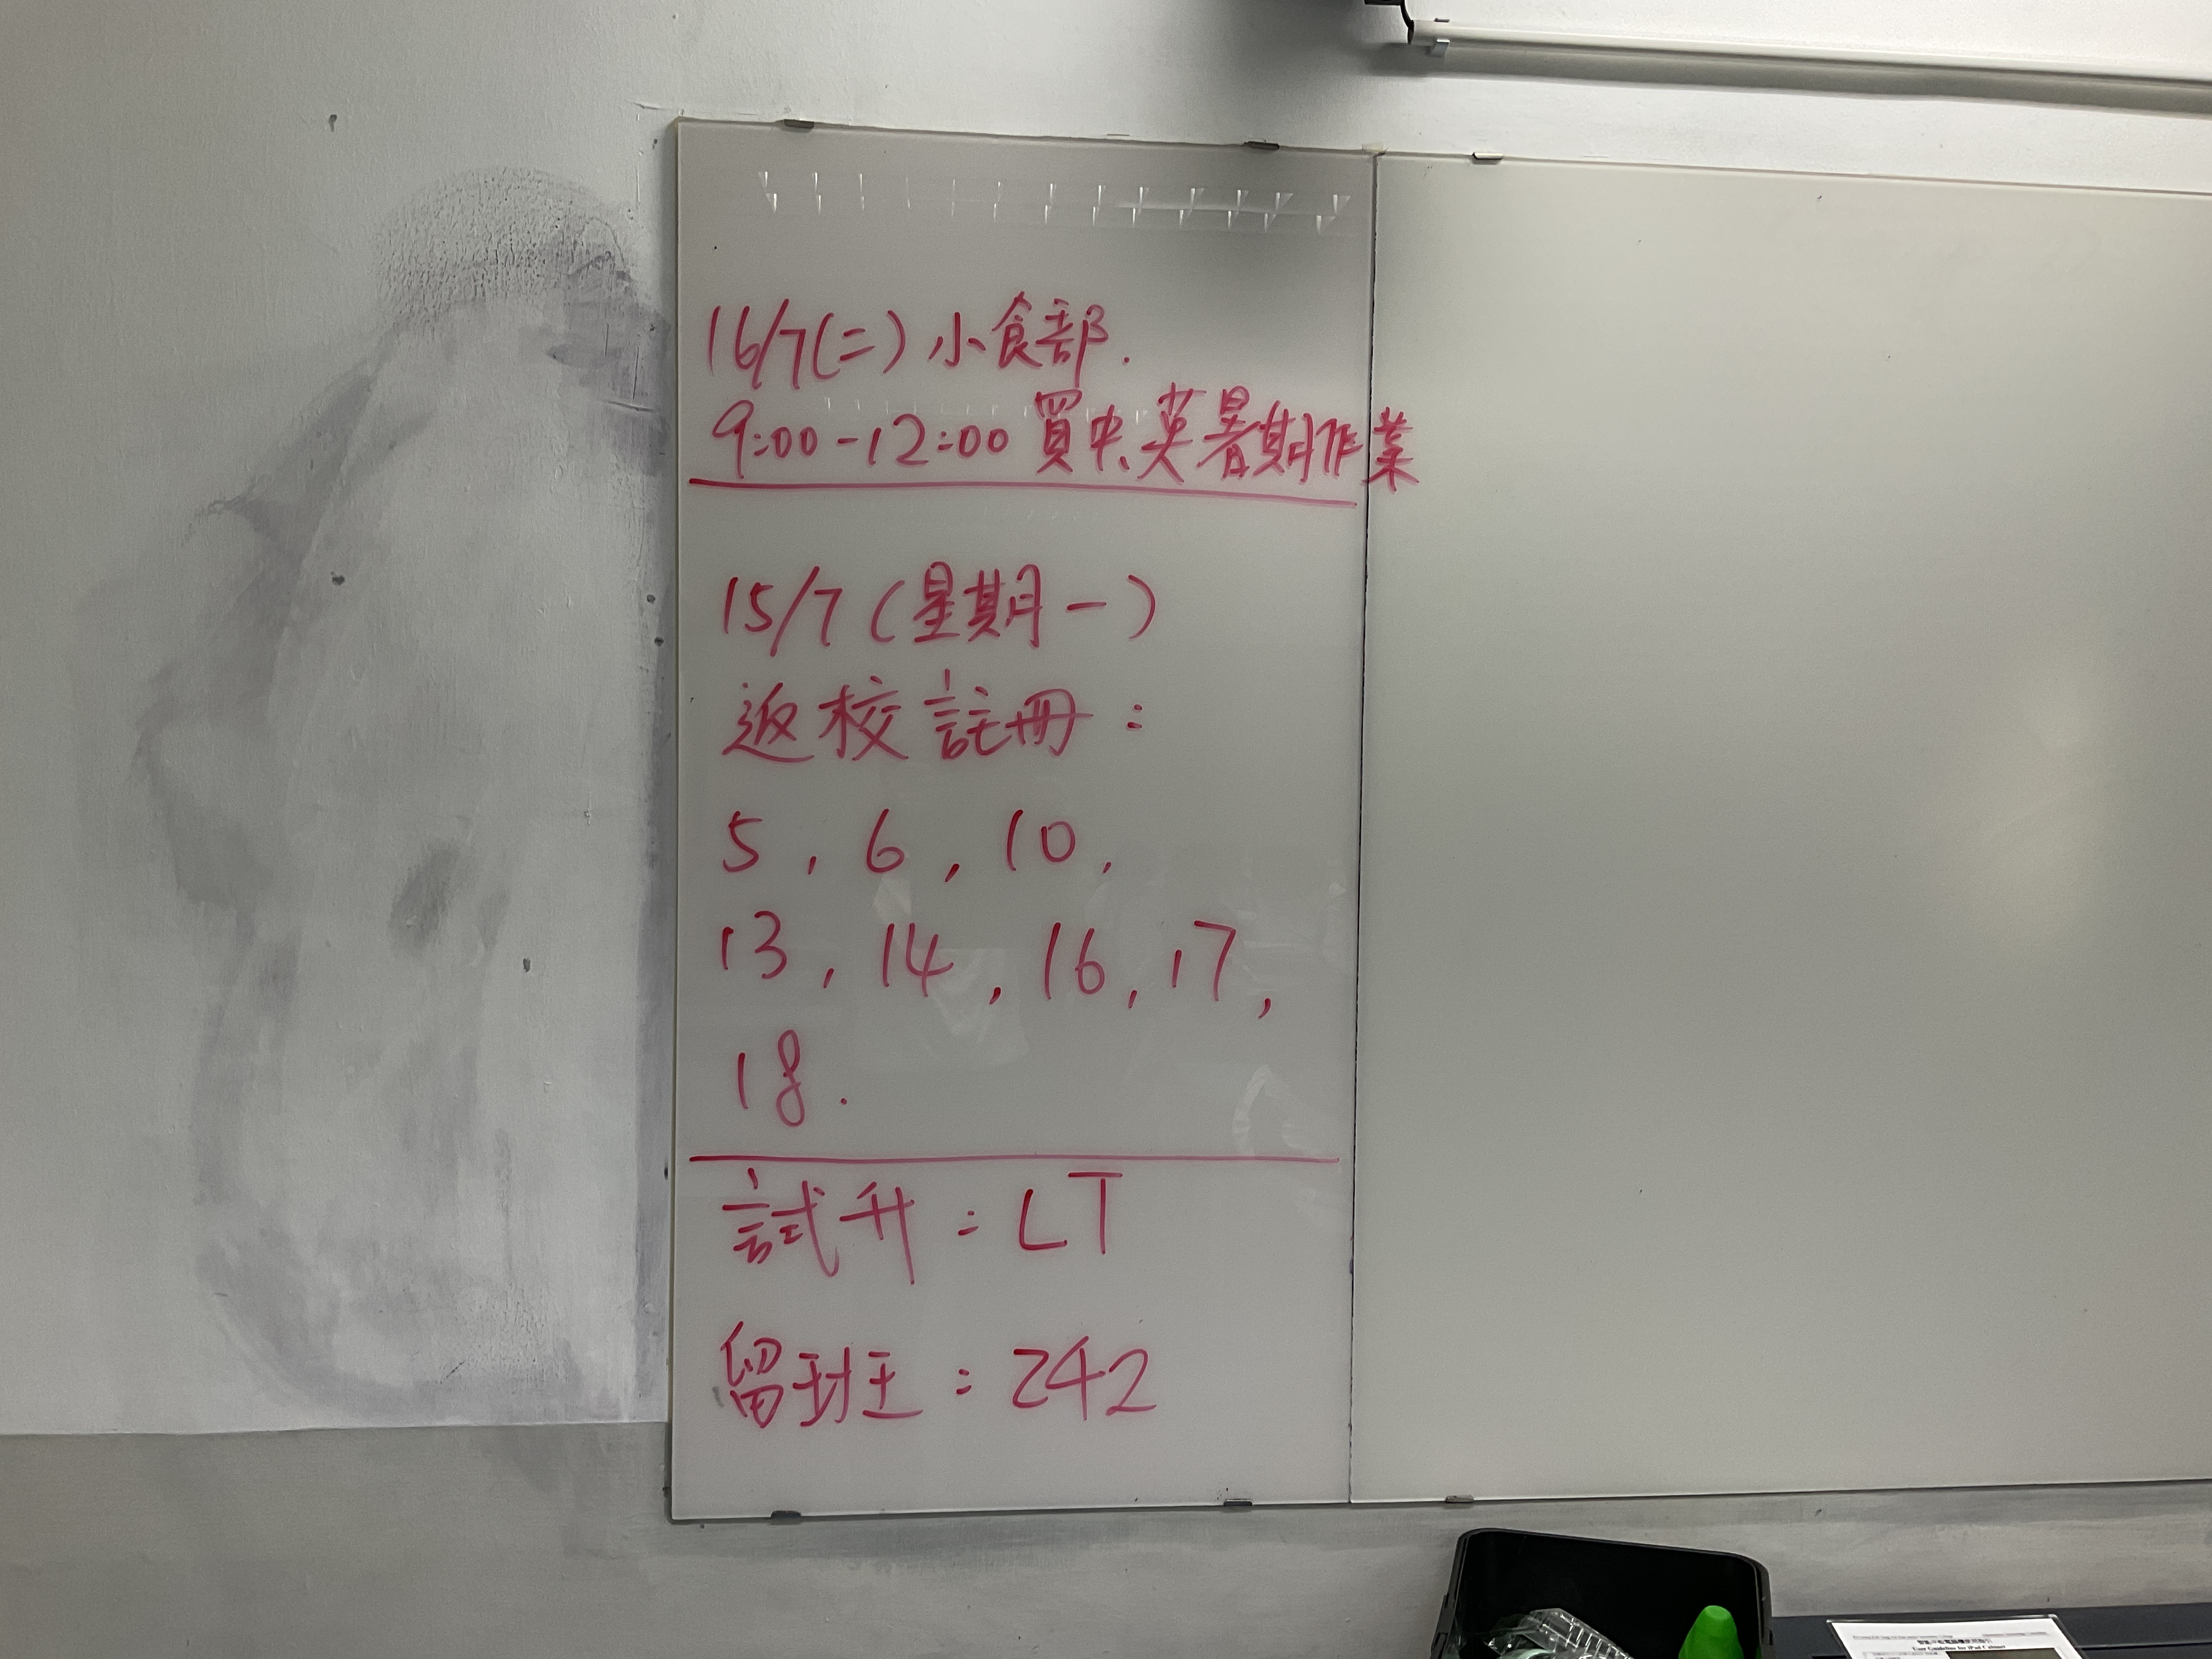 16/7(二) 小食部.
9:00-12:00 買中、英暑期作業
15/7 (星期一)
返校註冊:
5, 6, 10,
13, 14, 16, 17,
18.
試升: LT
留班: 242
User Guideline for iPad Cabinet